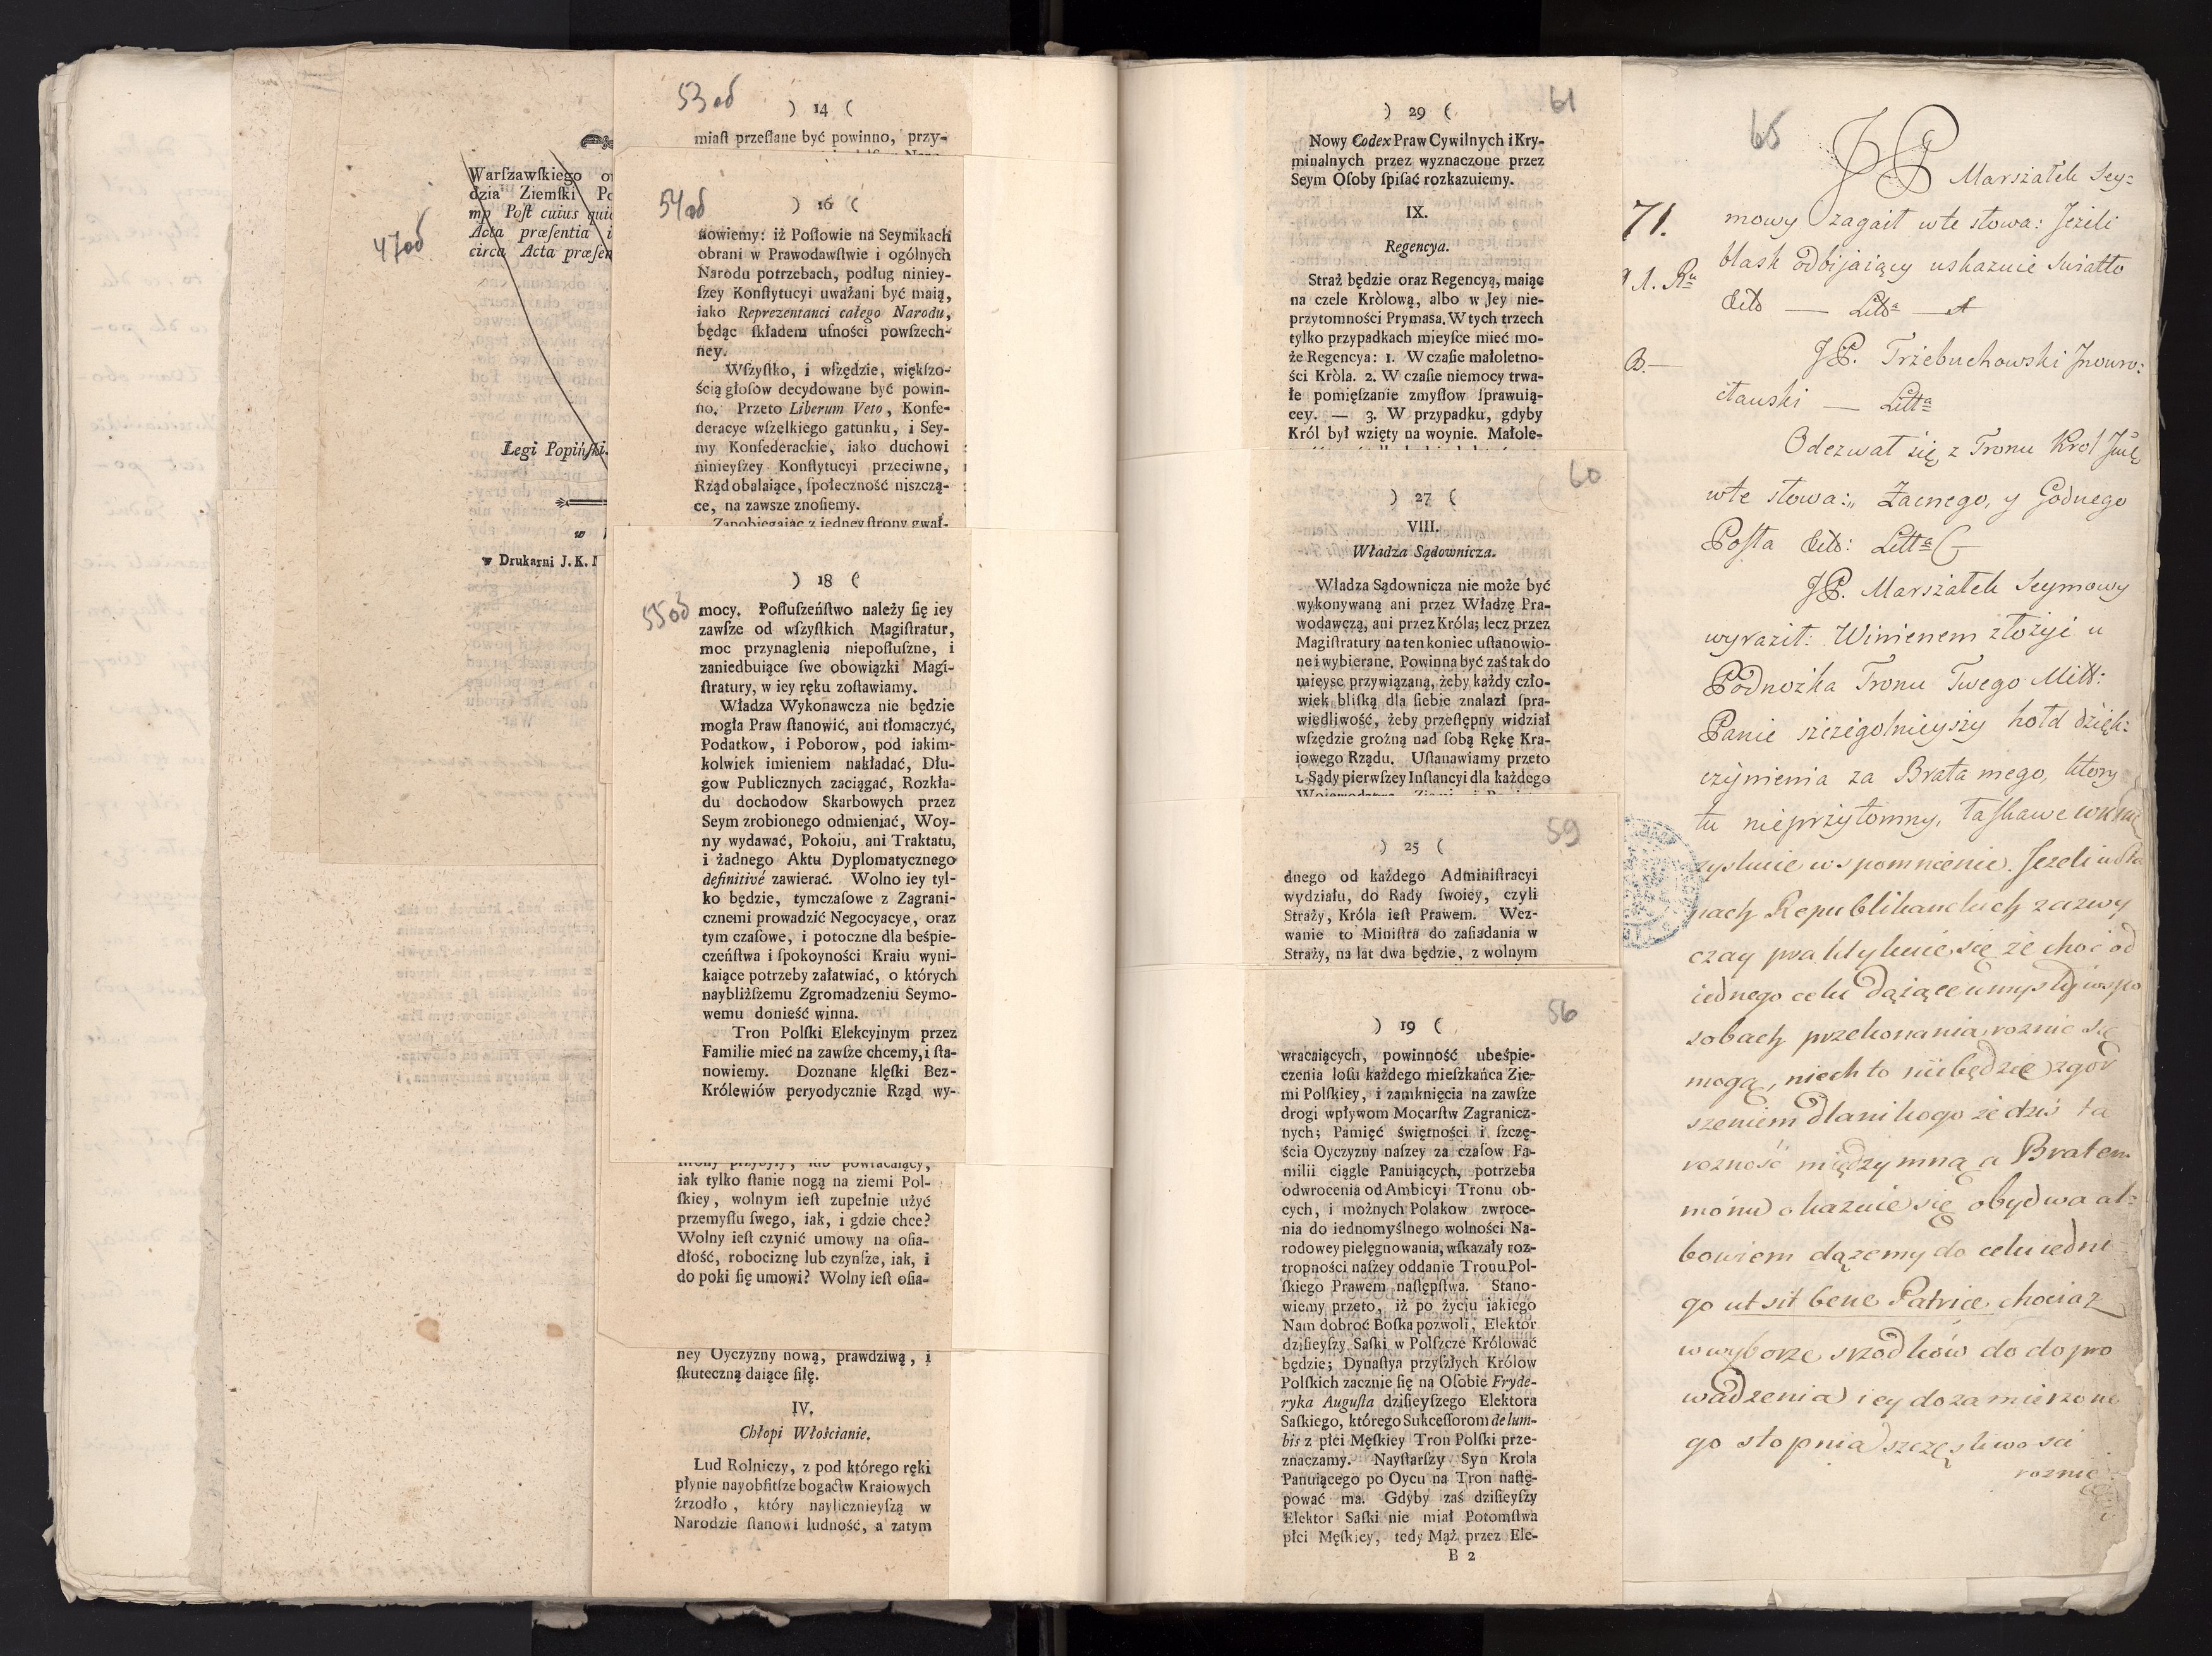 47об
Warſzawſkiego
dzia Ziemſki
mp Poſt cuius
Acta præſentia i
circa Acta præſen
Legi Popińſki.
w
w Drukarni J. K.
53об
) 14 (
miaſt przeſłane być powinno, przy-
54об
) 16 (
nowiemy: iż Poſłowie na Seymikach
obrani w Prawodawſtwie i ogólnych
Narodu potrzebach, podług niniey-
ſzey Konſtytucyi uważani być maią,
iako Reprezentanci całego Narodu,
będąc ſkładem ufności powſzech-
ney.
Wſzyſtko, i wſzędzie, większo-
ścią głoſów decydowane być powin-
no. Przeto Liberum Veto, Konfe-
deracye wſzelkiego gatunku, i Sey-
my Konfederackie, iako duchowi
ninieyſzey Konſtytucyi przeciwne,
Rząd obalaiące, ſpołeczność niszczą-
ce, na zawsze znoſiemy.
Zapobiegaiąc z iedney ſtrony gwał-
55об
) 18 (
mocy. Poſłuſzeńſtwo należy ſię iey
zawſze od wſzyſtkich Magiſtratur,
moc przynaglenia niepoſłuſzne, i
zaniedbuiące ſwe obowiązki Magi-
ſtratury, w iey ręku zoſtawiamy.
Władza Wykonawcza nie będzie
mogła Praw ſtanowić, ani tłomaczyć,
Podatkow, i Poborow, pod iakim-
kolwiek imieniem nakładać, Dłu-
gow Publicznych zaciągać, Rozkła-
du dochodow Skarbowych przez
Seym zrobionego odmieniać, Woy-
ny wydawać, Pokoiu, ani Traktatu,
i żadnego Aktu Dyplomatycznego
definitivé zawierać. Wolno iey tyl-
ko będzie, tymczaſowe z Zagrani-
cznemi prowadzić Negocyacye, oraz
tym czaſowe, i potoczne dla beśpie-
czeńſtwa i ſpokoyności Kraiu wyni-
kaiące potrzeby załatwiać, o których
naybliżſzemu Zgromadzeniu Seymo-
wemu donieść winna.
Tron Polſki Elekcyinym przez
Familie mieć na zawſze chcemy, i ſta-
nowiemy. Doznane klęſki Bez-
Królewiów peryodycznie Rząd wy-
ſtrony przybyły, lub powracaiący,
iak tylko ſtanie nogą na ziemi Pol-
ſkiey, wolnym ieſt zupełnie użyć
przemyſłu ſwego, iak, i gdzie chce?
Wolny ieſt czynić umowy na oſia-
dłość, robociznę lub czynſze, iak, i
do poki ſię umowi? Wolny ieſt oſia-
ney Oyczyzny nową, prawdziwą, i
ſkuteczną daiące ſiłę.
IV.
Chłopi Włościanie.
Lud Rolniczy, z pod którego ręki
płynie nayobfitſze bogactw Kraiowych
źrzodło, który nayłicznieyſzą w
Narodzie ſtanowi ludność, a zatym
61
) 29 (
Nowy Codex Praw Cywilnych i Kry-
minalnych przez wyznaczone przez
Seym Oſoby ſpiſać rozkazuiemy.
IX.
Regencya.
Straż będzie oraz Regencyą, maiąc
na czele Królową, albo w Jey nie-
przytomności Prymasa. W tych trzech
tylko przypadkach mieyſce mieć mo-
że Regencya: 1. W czaſie małoletno-
ści Króla. 2. W czaſie niemocy trwa-
łe pomięſzanie zmyſłow ſprawuią-
cey. — 3. W przypadku, gdyby
Król był wzięty na woynie. Małole-
60
) 27 (
VIII.
Władza Sądownicza.
Władza Sądownicza nie może być
wykonywaną ani przez Władzę Pra-
wodawczą, ani przez Króla; lecz przez
Magiſtratury na ten koniec uſtanowio-
ne i wybierane. Powinna być zaś tak do
mieysc przywiązaną, żeby każdy czło-
wiek bliſką dla ſiebie znalazł ſpra-
wiedliwość, żeby przeſtępny widział
wſzędzie groźną nad ſobą Rękę Kra-
iowego Rządu. Uſtanawiamy przeto
1. Sądy pierwſzey Inſtancyi dla każdego
Woiewodztwa, Ziemi, i Powiatu
59
) 25 (
dnego od każdego Adminiſtracyi
wydziału, do Rady ſwoiey, czyli
Straży, Króla ieſt Prawem. Wez-
wanie to Miniſtra do zaſiadania w
Straży, na lat dwa będzie, z wolnym
56
) 19 (
wracaiących, powinność ubeśpie-
czenia loſu każdego mieſzkańca Zie-
mi Polſkiey, i zamknięcia na zawſze
drogi wpływom Mocarſtw Zagranicz-
nych; Pamięć świętności i ſzczę-
ścia Oyczyzny naſzey za czaſow Fa-
milii ciągle Panuiących, potrzeba
odwrocenia od Ambicyi Tronu ob-
cych, i możnych Polakow zwroce-
nia do iednomyślnego wolności Na-
rodowey pielęgnowania, wſkazały roz-
tropności naſzey oddanie Tronu Pol-
ſkiego Prawem naſtępſtwa. Stano-
wiemy przeto, iż po życiu iakiego
Nam dobroć Boſka pozwoli, Elektor
dziſieyſzy Saſki w Polſzcze Królować
będzie; Dynaſtya przyſzłych Królow
Polſkich zacznie ſię na Oſobie Fryde-
ryka Auguſta dziſieyſzego Elektora
Saſkiego, którego Sukceſſorom de lum-
bis z płci Męſkiey Tron Polſki prze-
znaczamy. Nayſtarſzy Syn Krola
Panuiącego po Oycu na Tron naſtę-
pować ma. Gdyby zaś dziſieyſzy
Elektor Saſki nie miał Potomſtwa
płci Męſkiey, tedy Mąż przez Ele-
B 2
65
JP Marszałek Sey=
71. mowy zagaił w te słowa: Jeżeli
blask odbijaiący uskazuie swiatło
A
B. — JP. Trzebuchowski Jnowro=
cławski — Litta
Odezwał się z Tronu Krol Jmć
w te słowa: „ Zacnego, y Godnego
Posła Litta C
JP. Marszałek Seymowy
wyraził: Winienem złożyć u
Podnożka Tronu Twego Miłł:
Panie szczegolnieyszy hołd dzięk=
czynienia za Brata mego, ktory
tu nieprzytomny, łaskawe
wspomnienie. Jezeli w Sta
nach Republikanckich zazwy
czay praktykuie się że choć od
iednego celu dążące umysły w spo
sobach przekonania roznic się
mogą, niech to nie będzie zgor
szeniem dla nikogo że dziś ta
rozność między mną a Bratem
moim okazuie się obydwa al=
bowiem dążemy do celu iedne
go ut sit bene Patriæ chociaż
w wyborze srzodków do dopro
wadzenia iey do zamierzone
go stopnia szczęsliwosci
roznie